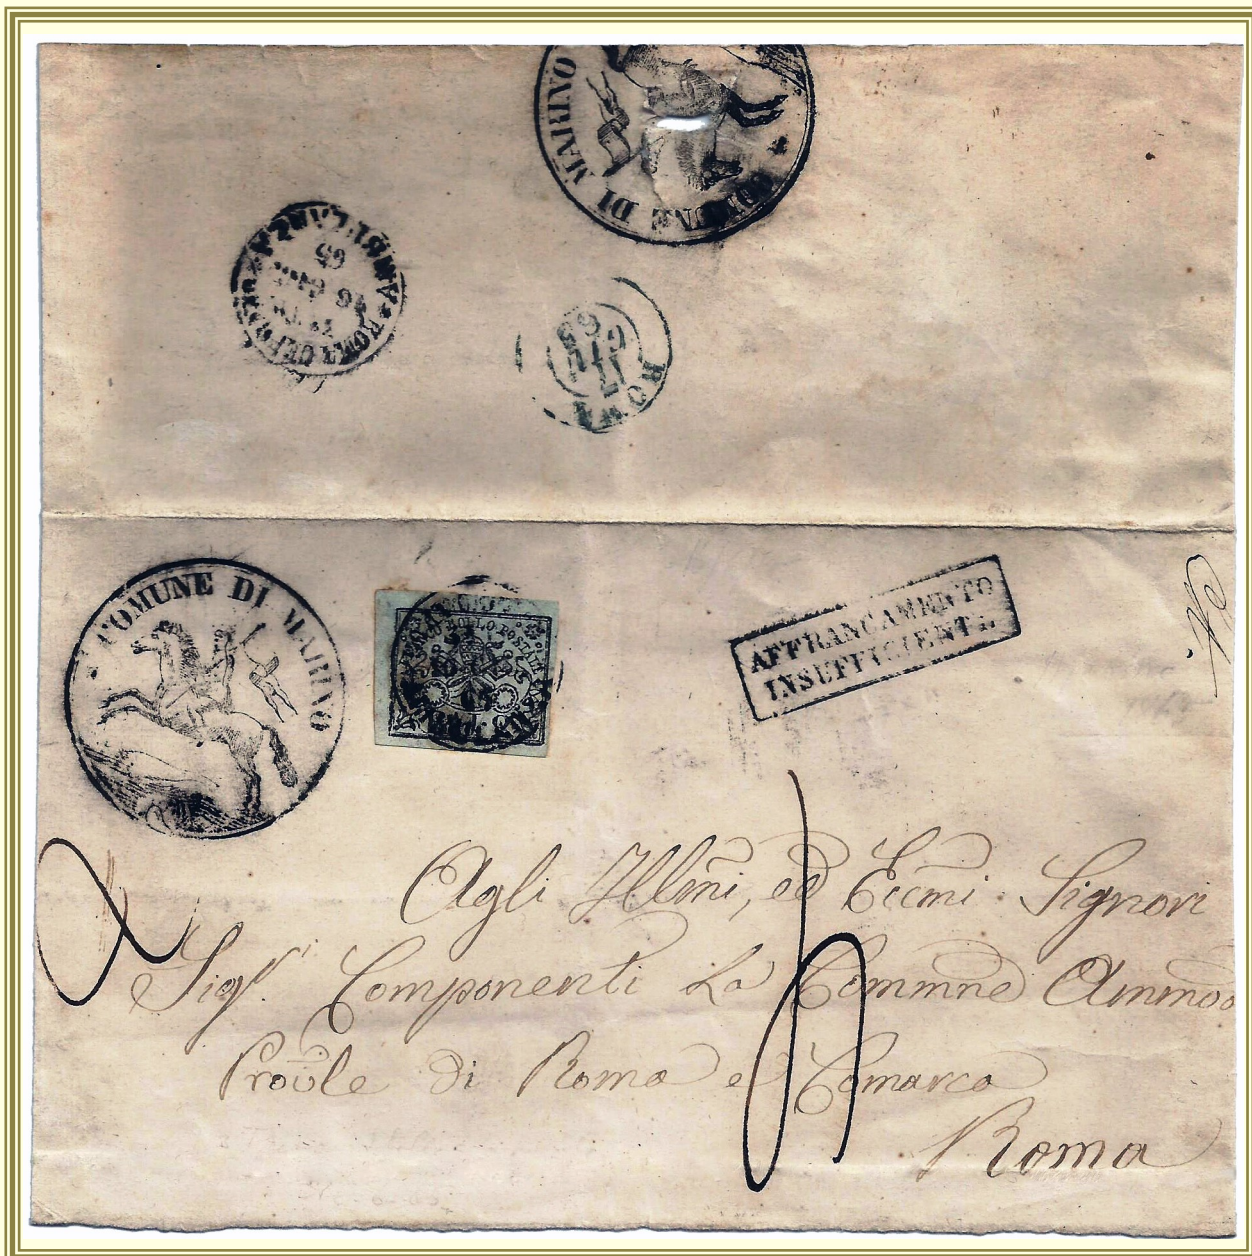 COMUNE DI MARINO
ROMA
17
GIU
65
COMUNE DI MARINO
BOLLO POSTALE
AFFRANCAMENTO
INSUFFICIENTE
Agli Illmi, ed Eccmi Signori
Sigri Componenti La Commne Ammva
Provle di Roma e Comarca
Roma